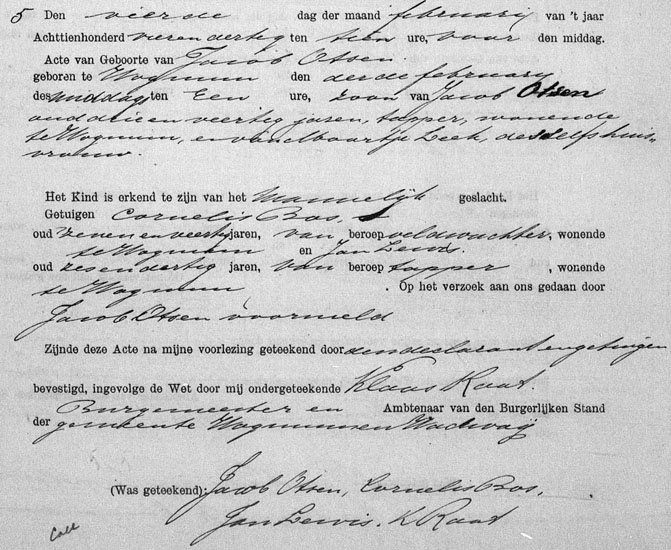 5 Den vierde dag der maand februarij van 't jaar
Achttienhonderd vierendertig ten tien ure, voor den middag.
Acte van Geboorte van Jacob Otsen.
geboren te Wognum den derde februarij
des middag ten Een ure, zoon van Jacob Otsen
oud drie en veertig jaren, tapper, wonende
te Wognum, en van Baartje Leek, deszelfs huis-
vrouw.
Het Kind is erkend te zijn van het Mannelijk geslacht.
Getuigen Cornelis Bos,
oud zeven en veertig jaren, van beroep veldwachter, wonende
te Wognum en Jan Lewis.
oud zesendertig jaren, van beroep tapper, wonende
te Wognum. Op het verzoek aan ons gedaan door
Jacob Otsen voormeld
Zijnde deze Acte na mijne voorlezing geteekend door den declarant en getuigen
bevestigd, ingevolge de Wet door mij ondergeteekende Klaas Raat.
Burgemeester en Ambtenaar van den Burgerlijken Stand
der gemeente Wognum en Wadway
(Was geteekend): Jacob Otsen, Cornelis Bos,
Jan Lewis. K Raat
Coll